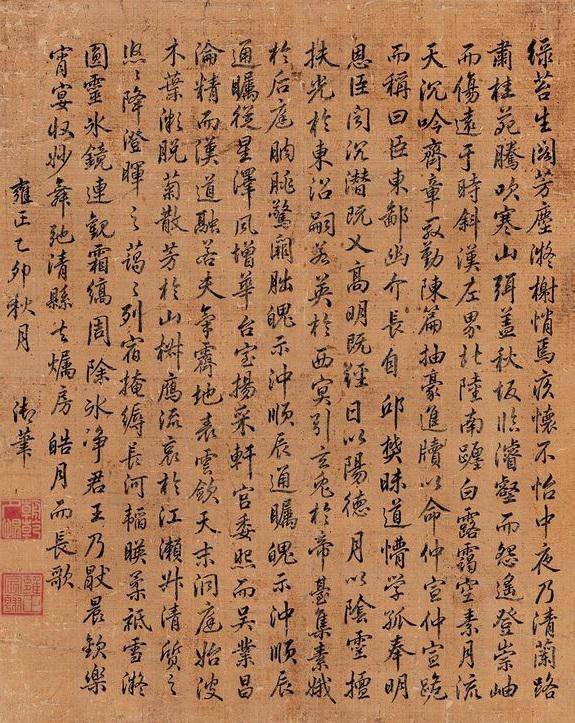 綠苔生閣芳塵凝榭悄焉疚懷不怡中夜乃清蘭路
肅桂苑騰吹寒山弭蓋秋坂臨濬壑而怨遙登崇岫
而傷遠于時斜漢左界北陸南躔白露靄空素月流
天沉吟齊章殷勤陳篇抽豪進牘以命仲宣仲宣跪
而稱曰臣東鄙幽介長自邱樊昧道懵學孤奉明
恩臣聞沉潛既义高明既經日以陽德月以陰靈擅
扶光於東沼嗣若英於西冥引玄兔於帝臺集素娥
於后庭朒朓驚闕朏魄示沖順辰通矚魄示沖順辰
通矚從星澤風增華台室揚采軒宮委照而吳業昌
淪精而漢道融若夫氣霽地表雲斂天末洞庭始波
木葉漸脫菊散芳於山椒雁流哀於江瀨升清質之
悠〻降澄暉之藹〻列宿掩縟長河韜映柔祇雪凝
圓靈冰鏡連觀霜縞周除冰淨君王乃厭晨歡樂
宵宴收妙舞弛清縣去燭房皓月而長歌
雍正乙卯秋月 御筆